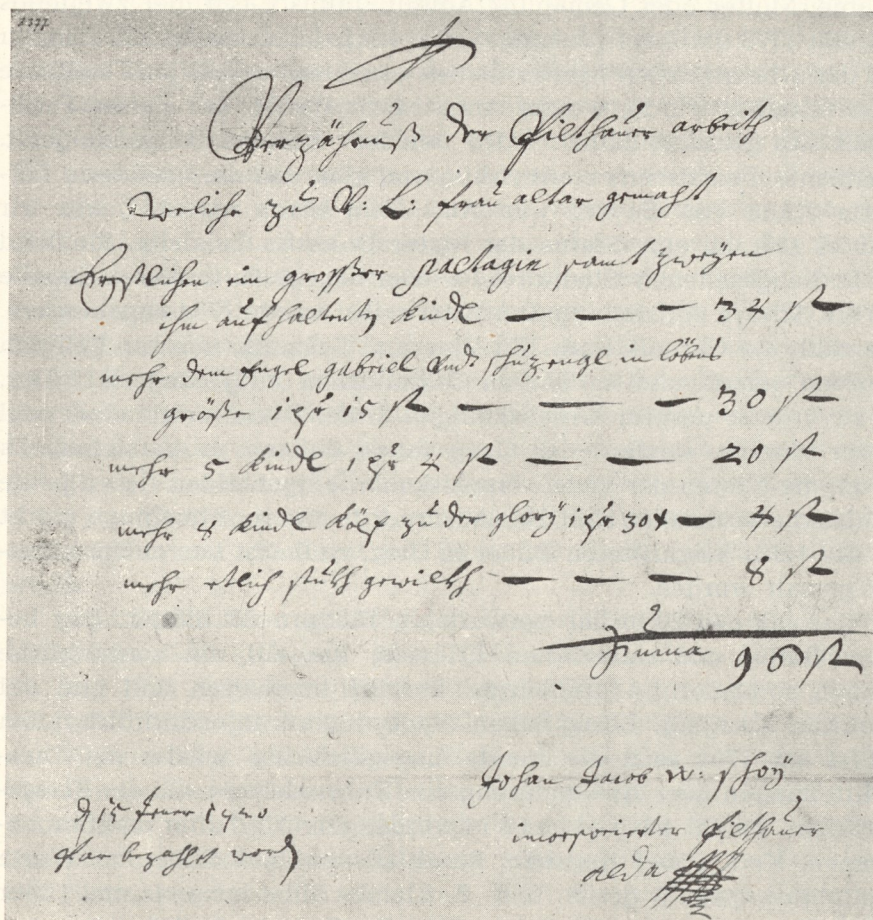 Verzähnuß der Pilthauer arbeith
weliche zu V: L: frau altar gemaht
Erstlichen ein grosser samt zweyen
ihm aufhaltenty Kindl — — — 34 fl
mehr dem Engel gabriel Vndt schuzengl in löbens
größe 1 pr 15 fl — — — 30 fl
mehr 5 Kindl 1 pr 4 fl — — 20 fl
mehr 8 Kindl Köpf zu der glory 1 pr 30 x — 4 fl
mehr etlich stukh gewilkh — — — 8 fl
Suma 96 fl
Johan Jacob schoÿ
incorporierter Pilthauer
alda
15 Jener 1720
Par bezahlet word